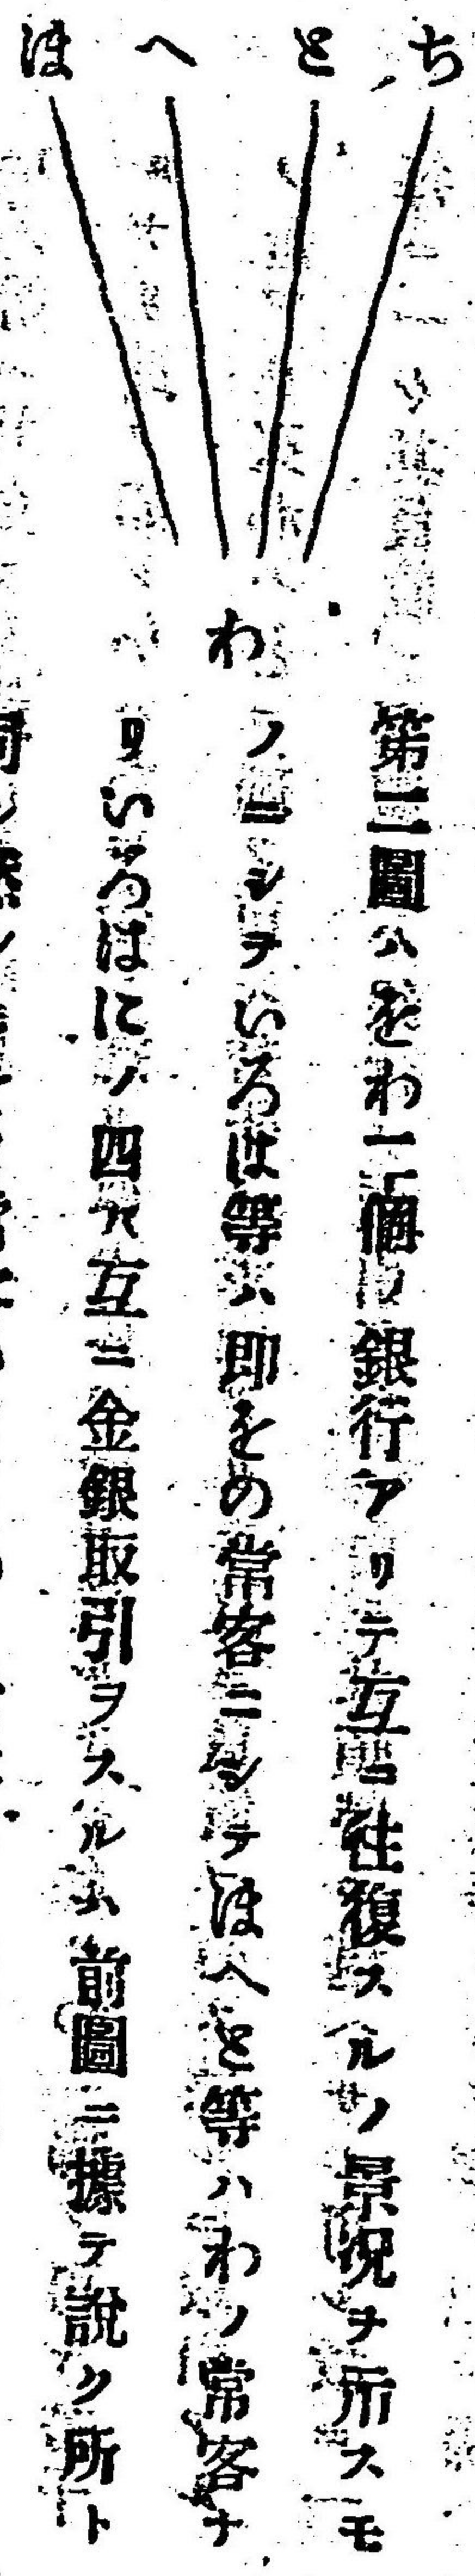 ち と へ ほ
わ
第二圖ハをわ二個ノ銀行アリテ互ニ往復スルノ景况ヲ示スモ
ノニシテいろは等ハ即をの常客ニシテほへと等ハわノ常客ナ
リいろはにノ四人互ニ金銀取引ヲスルハ前圖ニ據テ說ク所ト